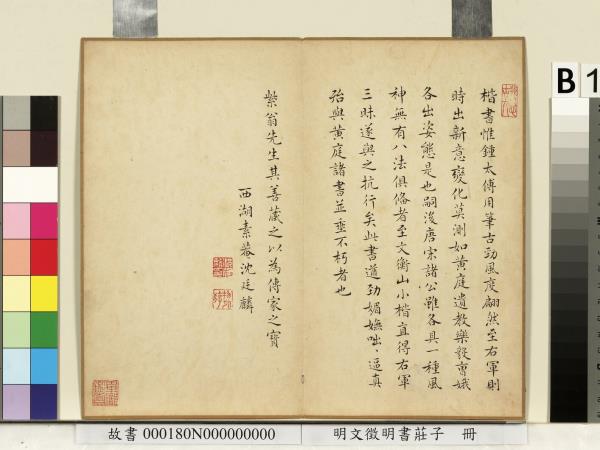 楷書惟鍾太傅用筆古勁風度翩然至右軍則
時出新意變化莫測如黃庭遺教樂毅曹娥
各出姿態是也嗣後唐宋諸公雖各具一種風
神無有八法俱俻者至文衡山小楷直得右軍
三昧遂與之抗行矣此書遒勁媚嫵咄咄逼真
殆與黃庭諸書並垂不朽者也
紫翁先生其善藏之以為傳家之寶
西湖素菴沈廷麟
B 1
故書 000180N000000000
明文徵明書莊子 冊